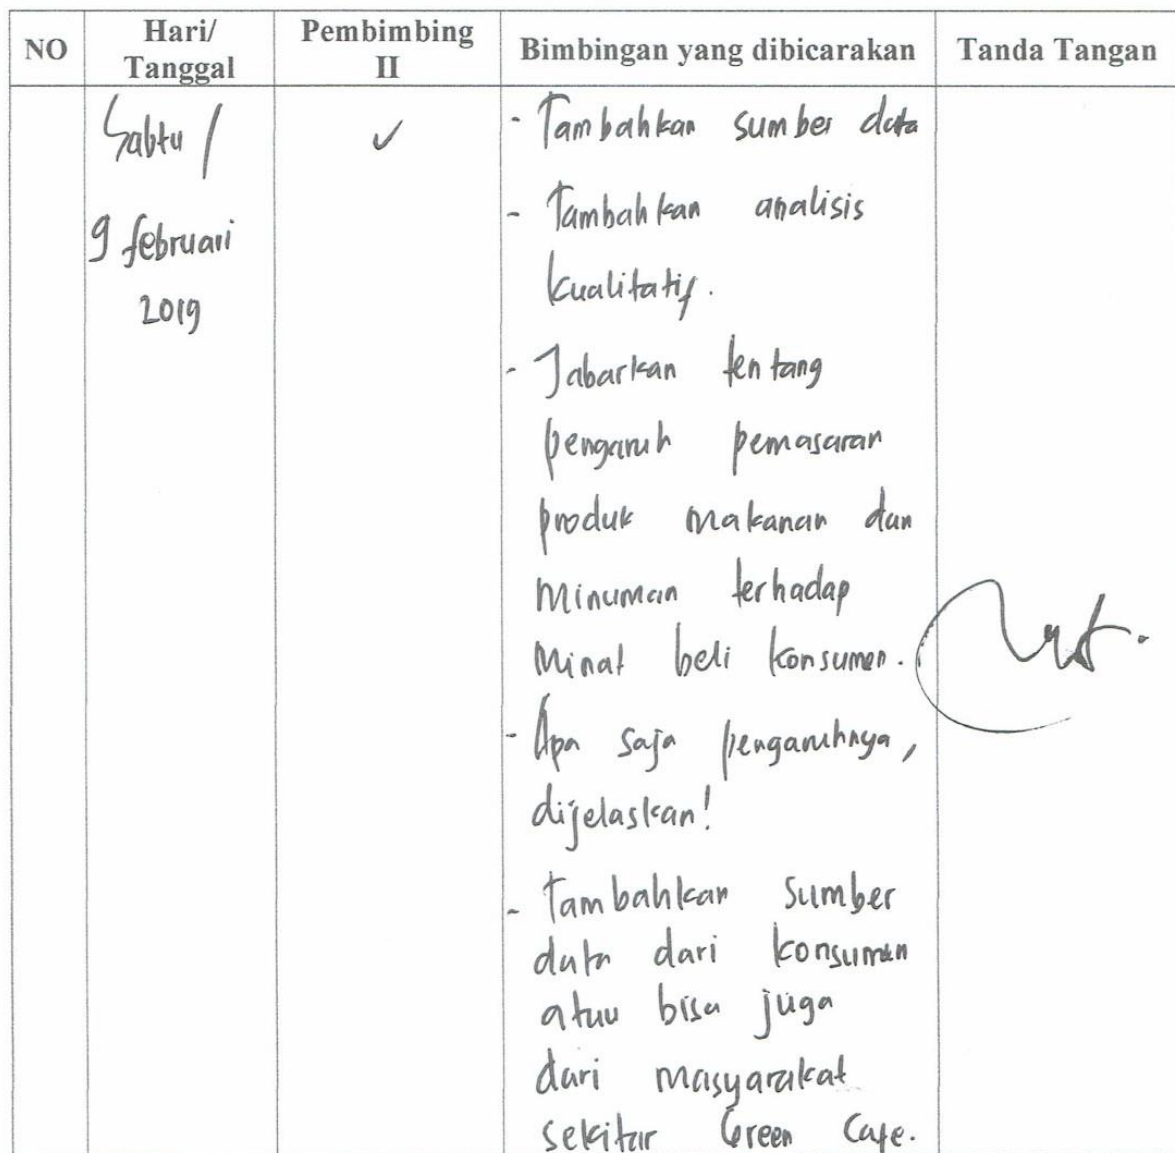 NO Hari/ Pembimbing Bimbingan yang dibicarakan Tanda Tangan
Tanggal II
Sabtu / ✓ - Tambahkan sumber data
9 februari - Tambahkan analisis
2019 kualitatif.
- Jabarkan tentang
pengaruh pemasaran
produk makanan dan
minuman terhadap
minat beli konsumen.
- Apa saja pengaruhnya,
dijelaskan!
- Tambahkan sumber
data dari konsumen
atau bisa juga
dari masyarakat
sekitar Green Cafe.